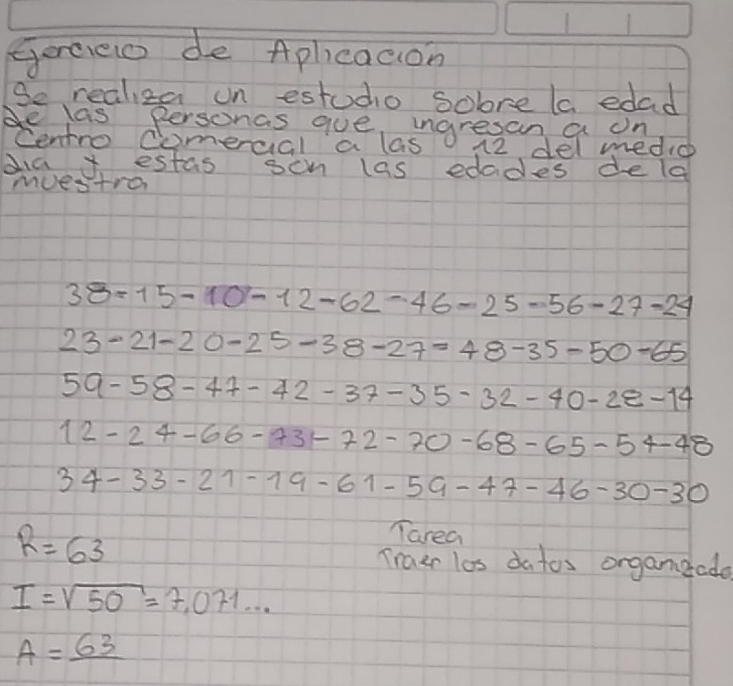 Ejercicio de Aplicación
Se realiza un estudio sobre la edad
de las Personas que ingresan a un
Centro Comercial a las 12 del medio
dia y estas son las edades de la
muestra
38-15-10-12-62-46-25-56-27-24
23-21-20-25-38-27-48-35-50-65
59-58-47-42-37-35-32-40-28-14
12-24-66-73-72-70-68-65-54-48
34-33-21-19-61-59-47-46-30-30
R=63
Tarea
Traer los datos organizado
I=√50=7,071...
A=63